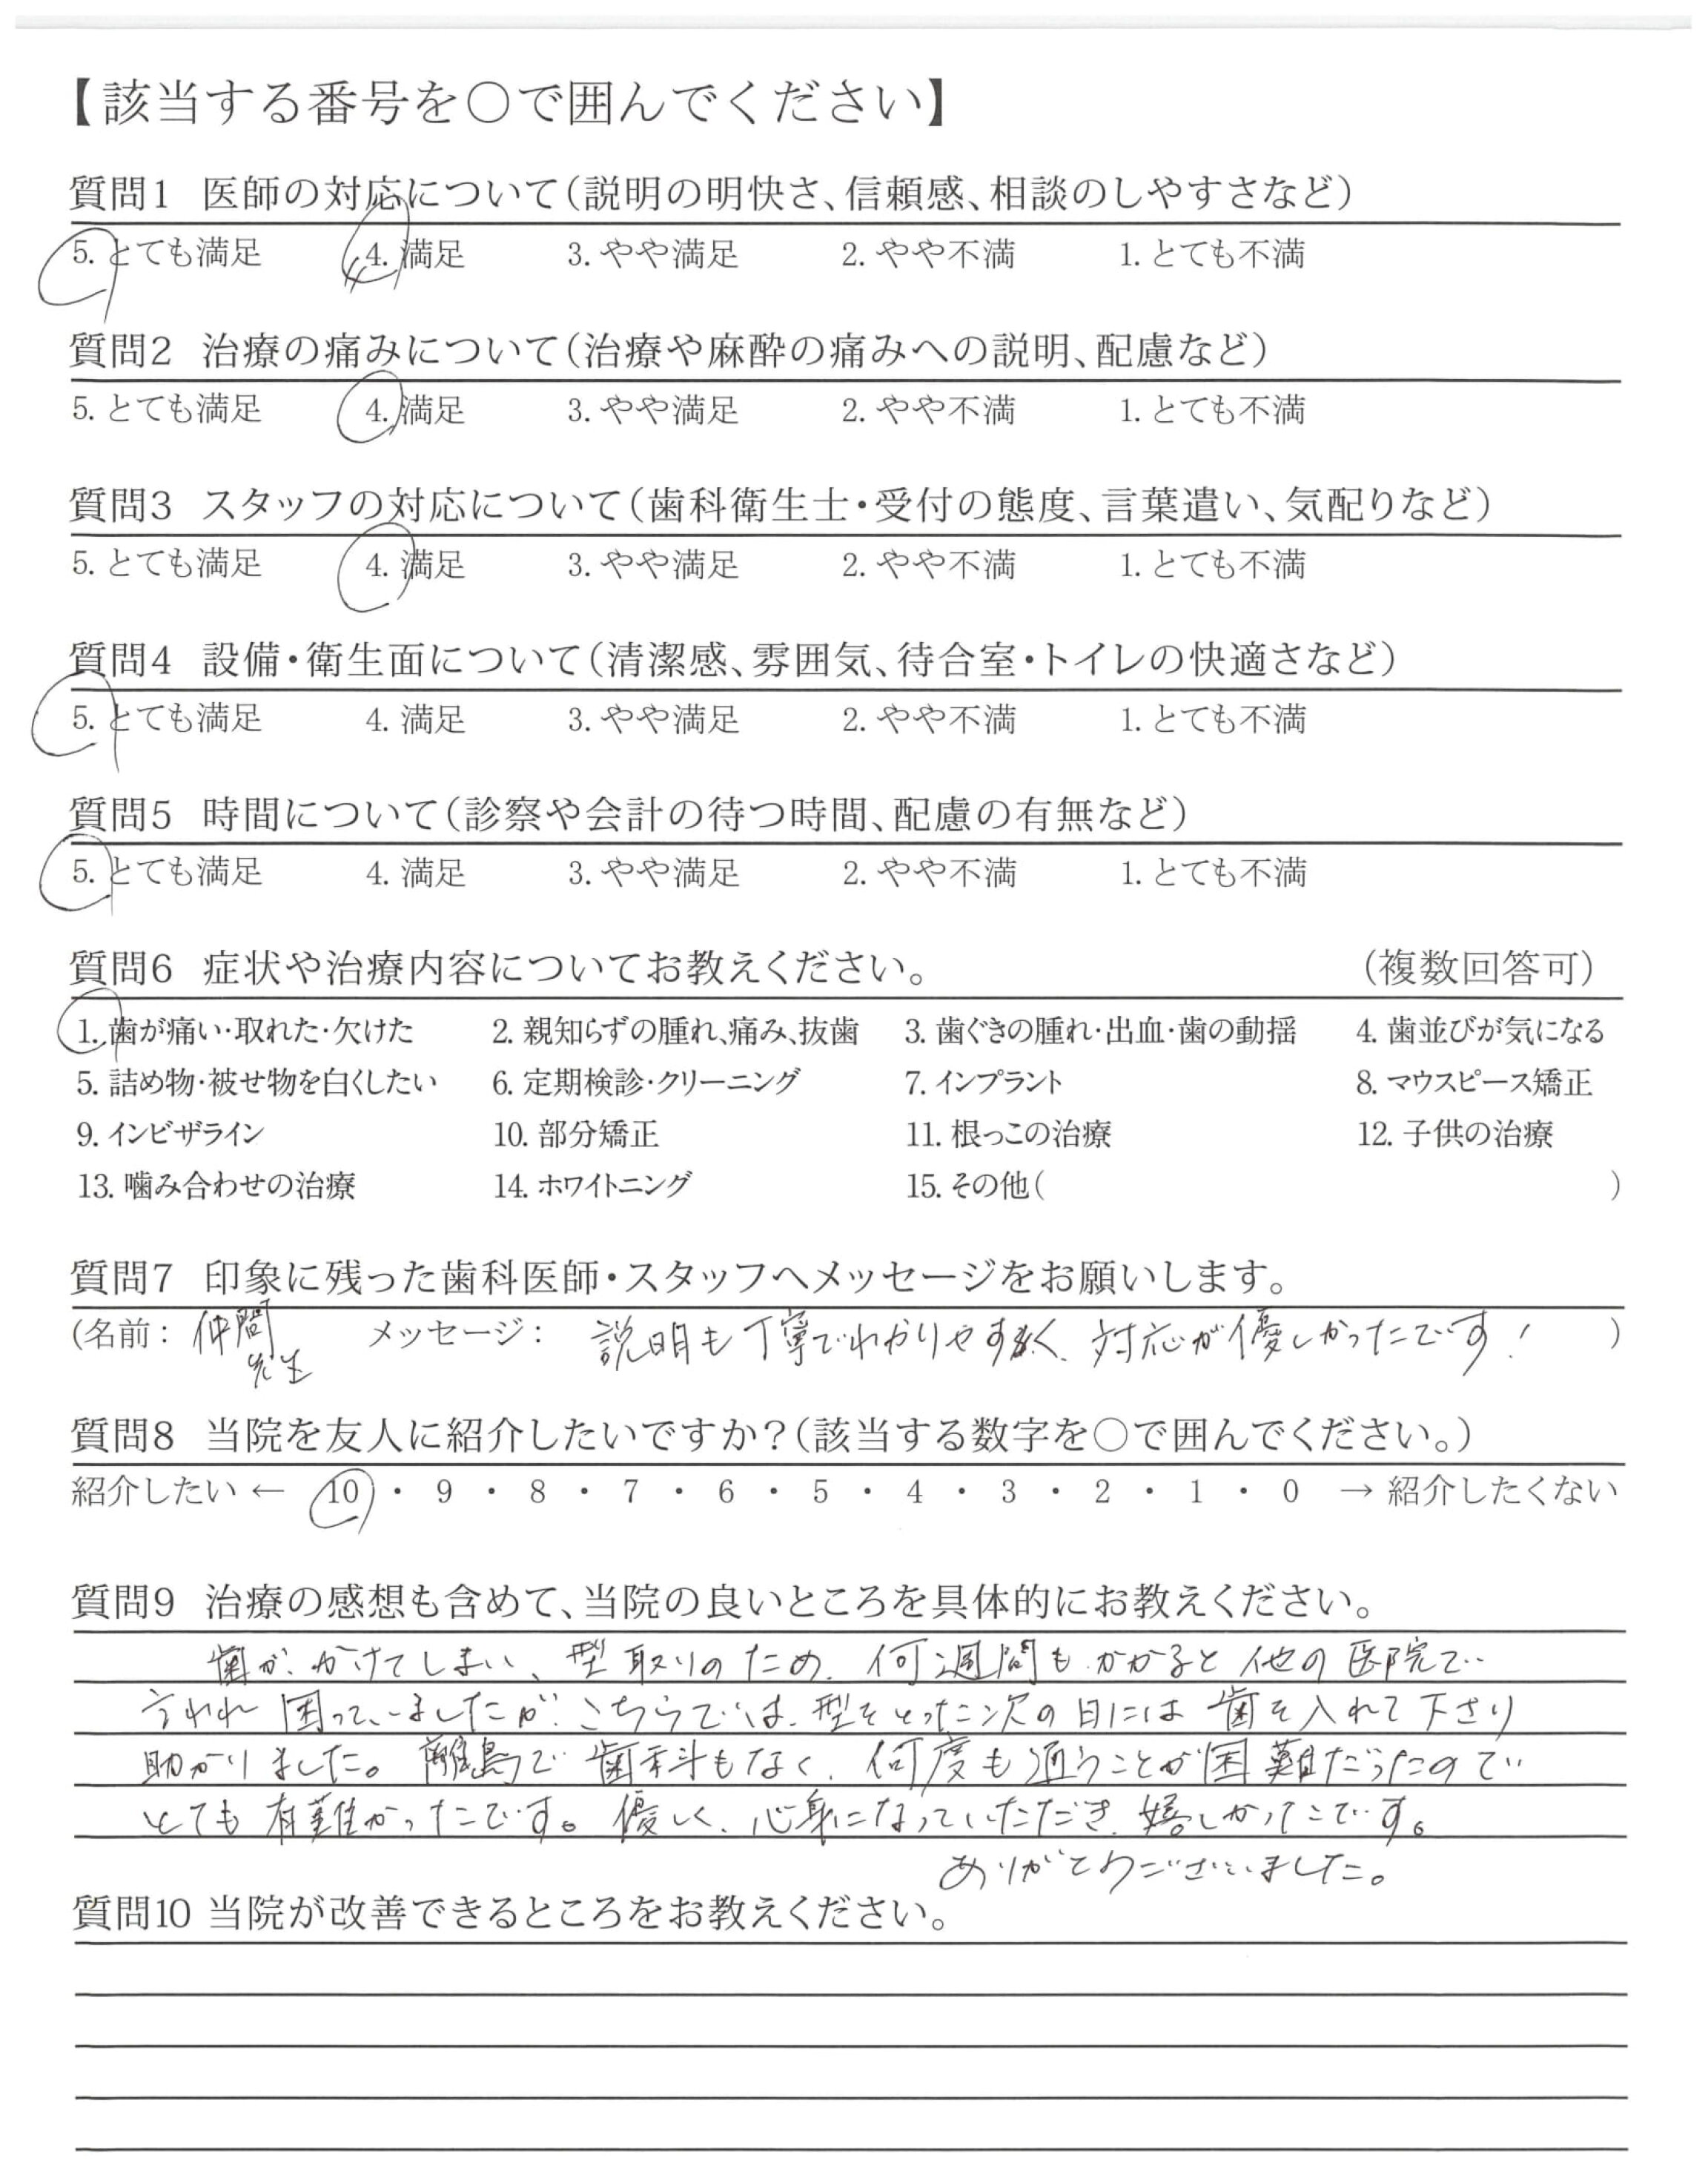 【該当する番号を○で囲んでください】
質問1 医師の対応について（説明の明快さ、信頼感、相談のしやすさなど）
5. とても満足 4. 満足 3. やや満足 2. やや不満 1. とても不満
質問2 治療の痛みについて（治療や麻酔の痛みへの説明、配慮など）
5. とても満足 4. 満足 3. やや満足 2. やや不満 1. とても不満
質問3 スタッフの対応について（歯科衛生士・受付の態度、言葉遣い、気配りなど）
5. とても満足 4. 満足 3. やや満足 2. やや不満 1. とても不満
質問4 設備・衛生面について（清潔感、雰囲気、待合室・トイレの快適さなど）
5. とても満足 4. 満足 3. やや満足 2. やや不満 1. とても不満
質問5 時間について（診察や会計の待つ時間、配慮の有無など）
5. とても満足 4. 満足 3. やや満足 2. やや不満 1. とても不満
質問6 症状や治療内容についてお教えください。 （複数回答可）
1. 歯が痛い・取れた・欠けた 2. 親知らずの腫れ、痛み、抜歯 3. 歯ぐきの腫れ・出血・歯の動揺 4. 歯並びが気になる
5. 詰め物・被せ物を白くしたい 6. 定期検診・クリーニング 7. インプラント 8. マウスピース矯正
9. インビザライン 10. 部分矯正 11. 根っこの治療 12. 子供の治療
13. 噛み合わせの治療 14. ホワイトニング 15. その他（ ）
質問7 印象に残った歯科医師・スタッフへメッセージをお願いします。
（名前： 仲間先生 メッセージ： 説明も丁寧でわかりやすく、対応が優しかったです！ ）
質問8 当院を友人に紹介したいですか？（該当する数字を○で囲んでください。）
紹介したい ← 10 ・ 9 ・ 8 ・ 7 ・ 6 ・ 5 ・ 4 ・ 3 ・ 2 ・ 1 ・ 0 → 紹介したくない
質問9 治療の感想も含めて、当院の良いところを具体的にお教えください。
歯が、かけてしまい、型取りのため、何週間もかかると他の医院で
言われ困っていましたが、こちらでは、型をとった次の日には歯を入れて下さり
助かりました。離島で歯科もなく、何度も通うことが困難だったので
とても有難かったです。優しく、心身になっていただき、嬉しかったです。
ありがとうございました。
質問10 当院が改善できるところをお教えください。